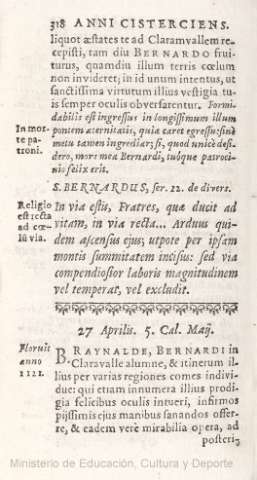 318 ANNI CISTERCIENS.
liquot æstates te ad Claramvallem re-
cepisti, tam diu BERNARDO frui-
turus, quamdiu illum terris cœlum
non invideret; in id unum intentus, ut
sanctissima virtutum illius vestigia tu-
is semper oculis obversarentur. Formi-
dabilis est ingressus in longissimum illum
In mor-
te pa-
troni.
pontem æternitatis, quia caret egressu: sine
metu tamen ingrediar; si, quod unicè desi-
dero, more mea Bernardi, tuoque patroci-
nio felix erit.
S. BERNARDUS, ser. 22. de divers.
Religio
est recta
ad cœ-
lū via.
In via estis, Fratres, quæ ducit ad
vitam, in via recta... Arduus qui-
dem ascensus ejus, utpote per ipsam
montis summitatem incisus: sed via
compendiosior laboris magnitudinem
vel temperat, vel excludit.
27 Aprilis. 5. Cal. Maij.
Floruit
anno
1122.
BRAYNALDE, BERNARDI in
Claravalle alumne, & itinerum il-
lius per varias regiones comes indivi-
due: qui etiam innumera illius prodi-
gia felicibus oculis intueri, infirmos
pijssimis ejus manibus sanandos offer-
re, & eadem verè mirabilia opera, ad
posteri-
Ministerio de Educación, Cultura y Deporte